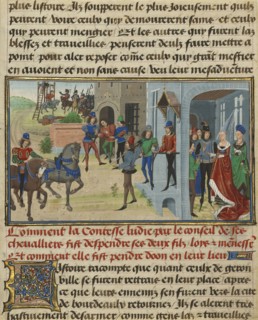 plus listoire. Il souperent le plus Joieusement quilz
peurent voire ceulx qui demourerent sains et ceulx
qui peurent mengier. Et les autres qui furent la
blessez et travueillies penserent deulx faire mettre a
point pour aler reposer come ceulx qui grant mestier
en avoient et non sans cause veu leur mesaduenture
Comment la Contesse ludie par le conseil de ses
cheualliers fist despendre ses deux filz lors a menesse
Et comment elle fist pendre doon en leur lieu
Listoire racompte que quant ceulx de geron
ville se furent retrais en leur place apres
ce que leurs ennemis sen furent vers la cite
de bourdeaulx retournes. Ilz se alerent tres
hastiuement desarmer comme gens las et travueillies